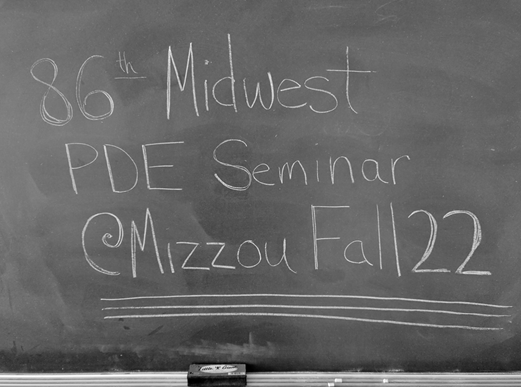 86th Midwest
PDE Seminar
@Mizzou Fall 22